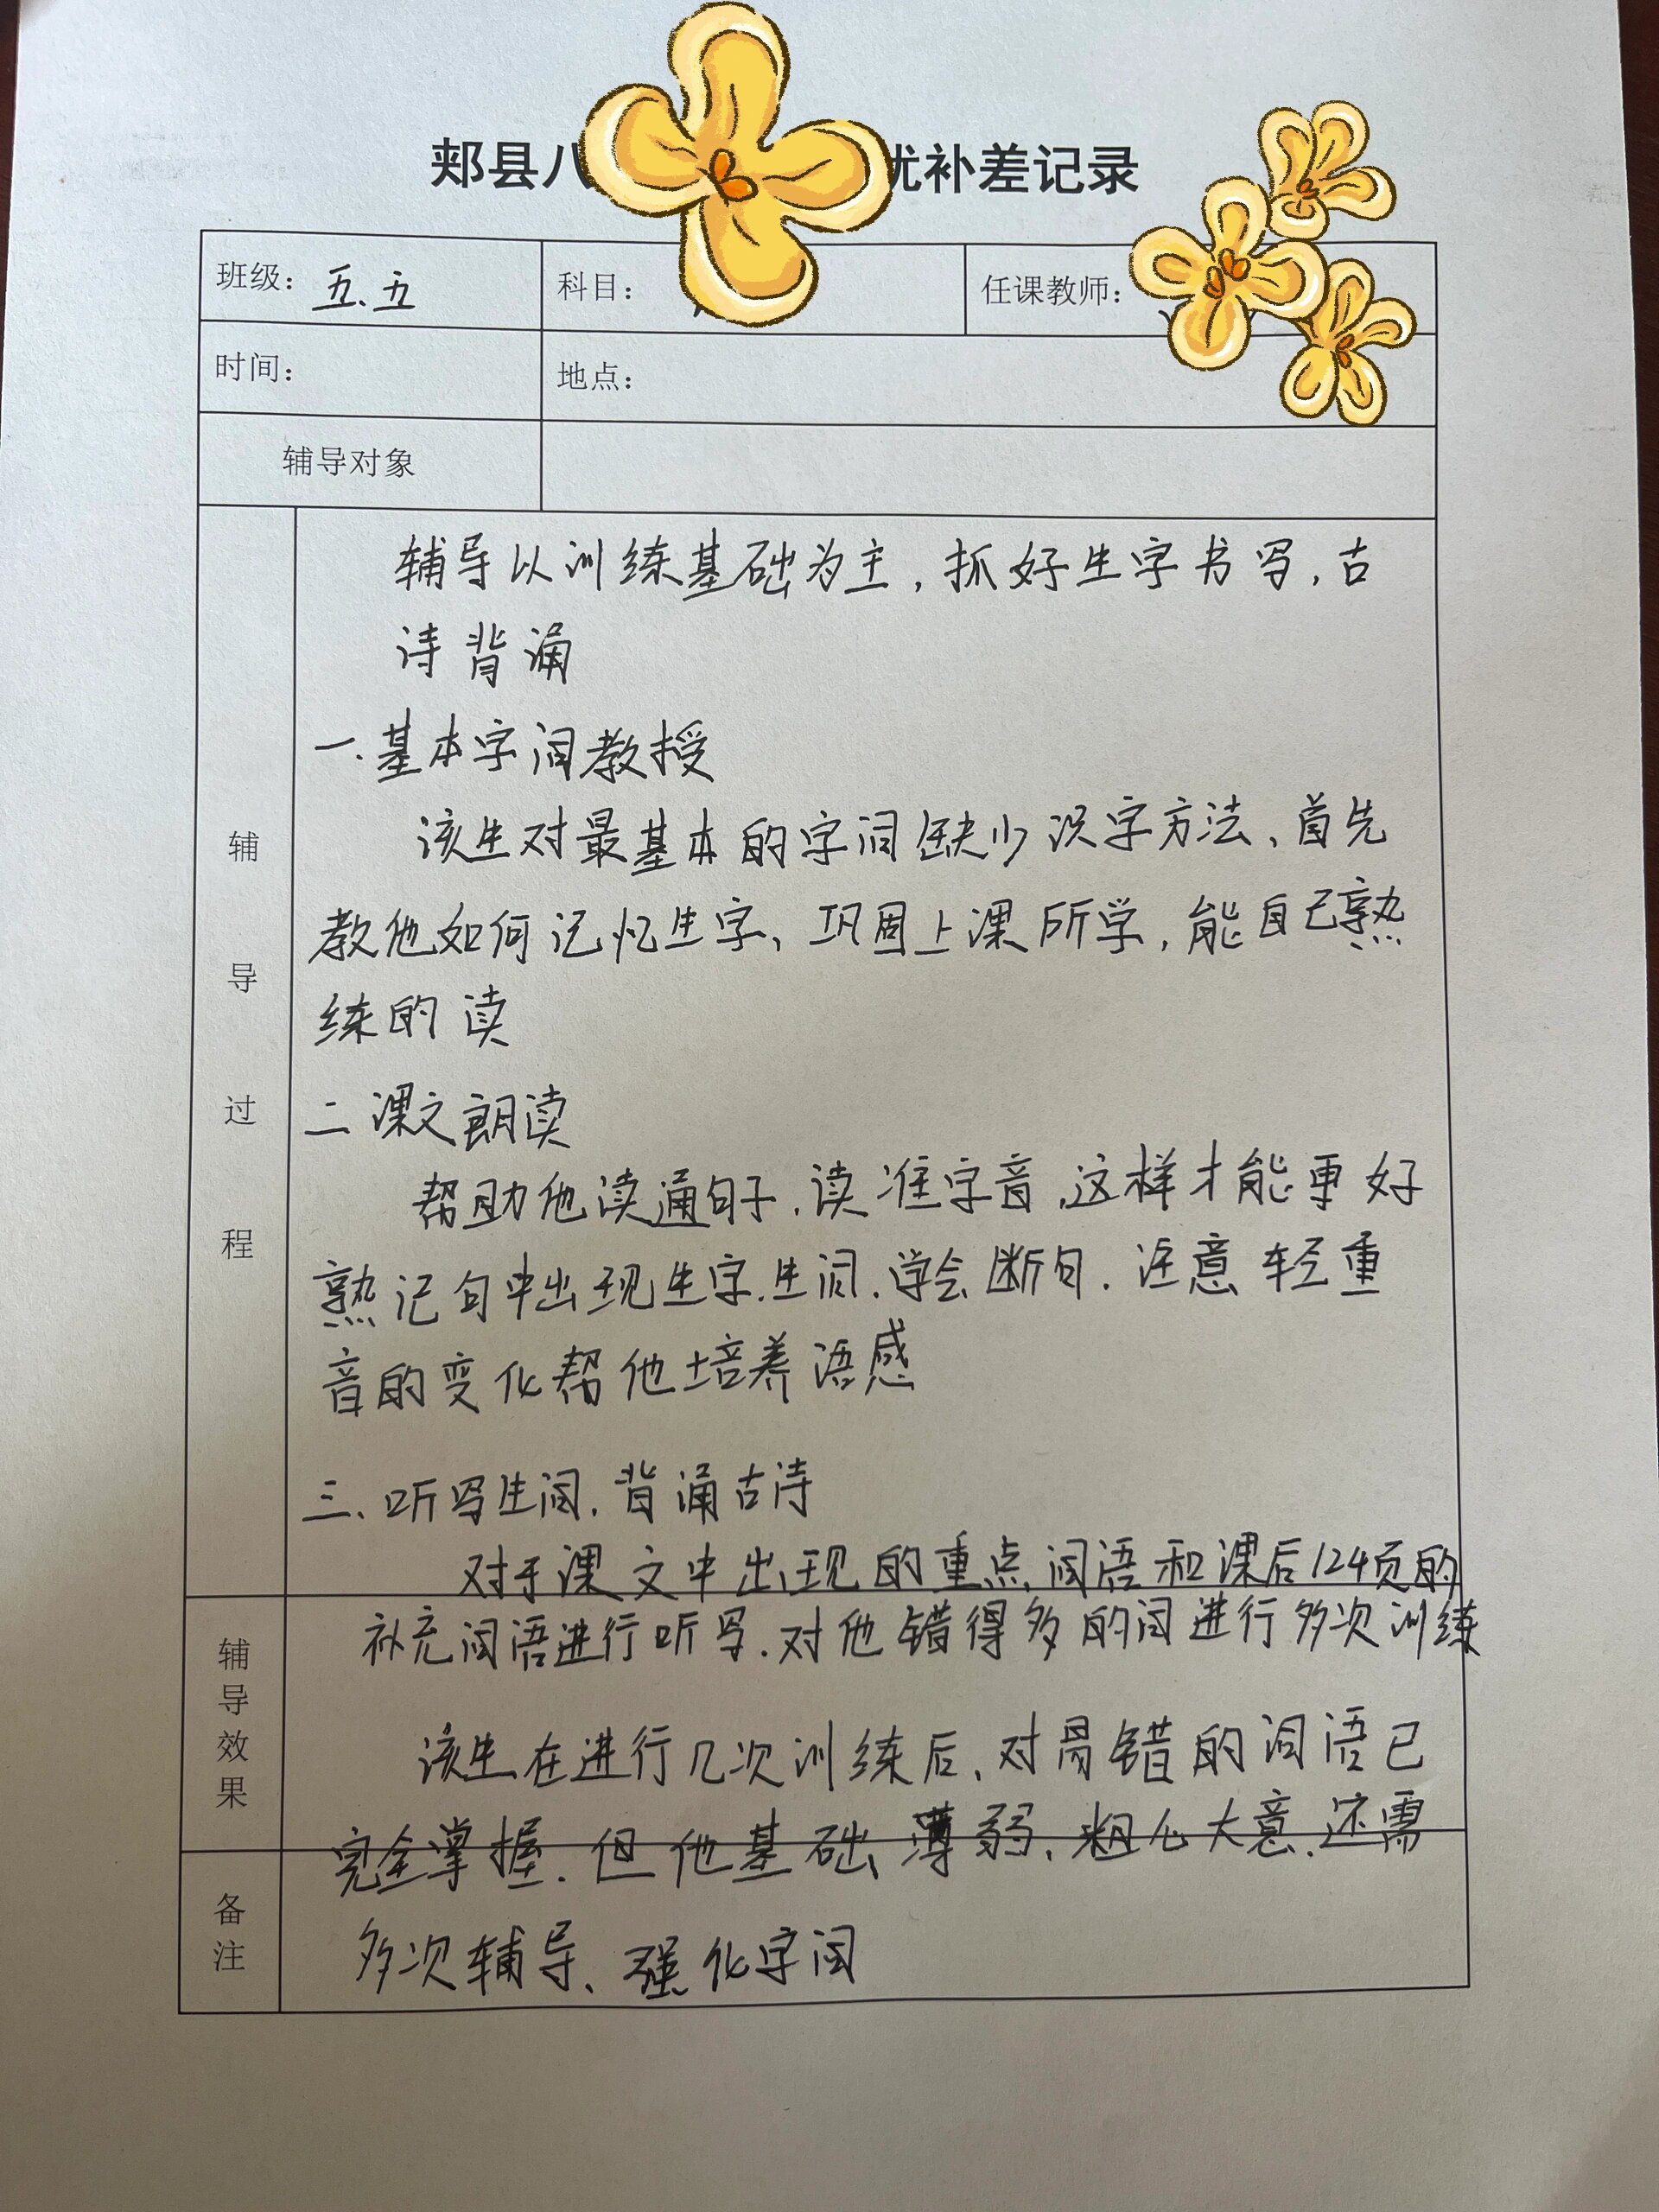 郏县八 优补差记录
班级：五.五 科目： 任课教师：
时间： 地点：
辅导对象
辅导过程
辅导以训练基础为主，抓好生字书写，古
诗背诵
一.基本字词教授
该生对最基本的字词缺少识字方法、首先
教他如何记忆生字、巩固上课所学，能自己熟
练的读
二 课文朗读
帮助他读通句子.读准字音,这样才能更好
熟记句中出现生字.生词.学会断句.注意轻重
音的变化帮他培养语感
三、听写生词.背诵古诗
对于课文中出现的重点词语和课后124页的
辅导效果
补充词语进行听写.对他错得多的词进行多次训练
该生在进行几次训练后、对易错的词语已
完全掌握.但他基础薄弱、粗心大意.还需
备注
多次辅导、强化字词